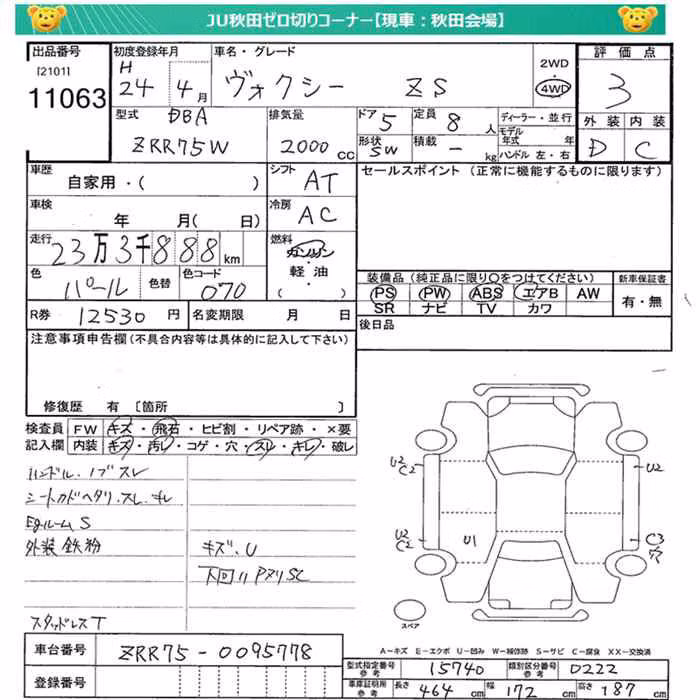 JU秋田ゼロ切りコーナー【現車：秋田会場】
出品番号 初度登録年月 車名・グレード 2WD・4WD 評価点
[2101] 11063 H24年4月 ヴォクシー ZS 3
型式 DBA ZRR75W 排気量 2000cc ドア 5 定員 8人 ディーラー・並行 外装 内装
形状 SW 積載 -kg モデル年式 年 ハンドル 左・右 D C
車歴 自家用・( ) シフト AT セールスポイント (正常に機能するものに限ります)
車検 年 月( 日) 冷房 AC
走行 23万3千888km 燃料 ガソリン・軽油・( )
色 パール 色替 色コード 070
装備品 (純正品に限り○をつけてください) 新車保証書
PS PW ABS エアB AW 有・無
SR ナビ TV カワ
R券 12530円 名変期限 月 日 後日品
注意事項申告欄 (不具合内容等は具体的に記入して下さい)
修復歴 有 [箇所 ]
検査員記入欄 FW キズ・飛石・ヒビ割・リペア跡・×要
内装 キズ・汚レ・コゲ・穴・スレ・キレ・破レ
ハンドル.ノブスレ
シートカドヘタリ.スレ.キレ
Egルーム S
外装 鉄粉 キズ.U
下回リ Pヌリ SC
スタッドレス T
U2 C2 U2
U2 C2 U1 C3 ワ
スペア
A-キズ E-エクボ U-凹み W-補修跡 S-サビ C-腐食 XX-交換済
車台番号 ZRR75-0095778
登録番号
型式指定番号 参考 15740 類別区分番号 参考 0222
車庫証明用 参考 長さ 464cm 幅 172cm 高さ 187cm